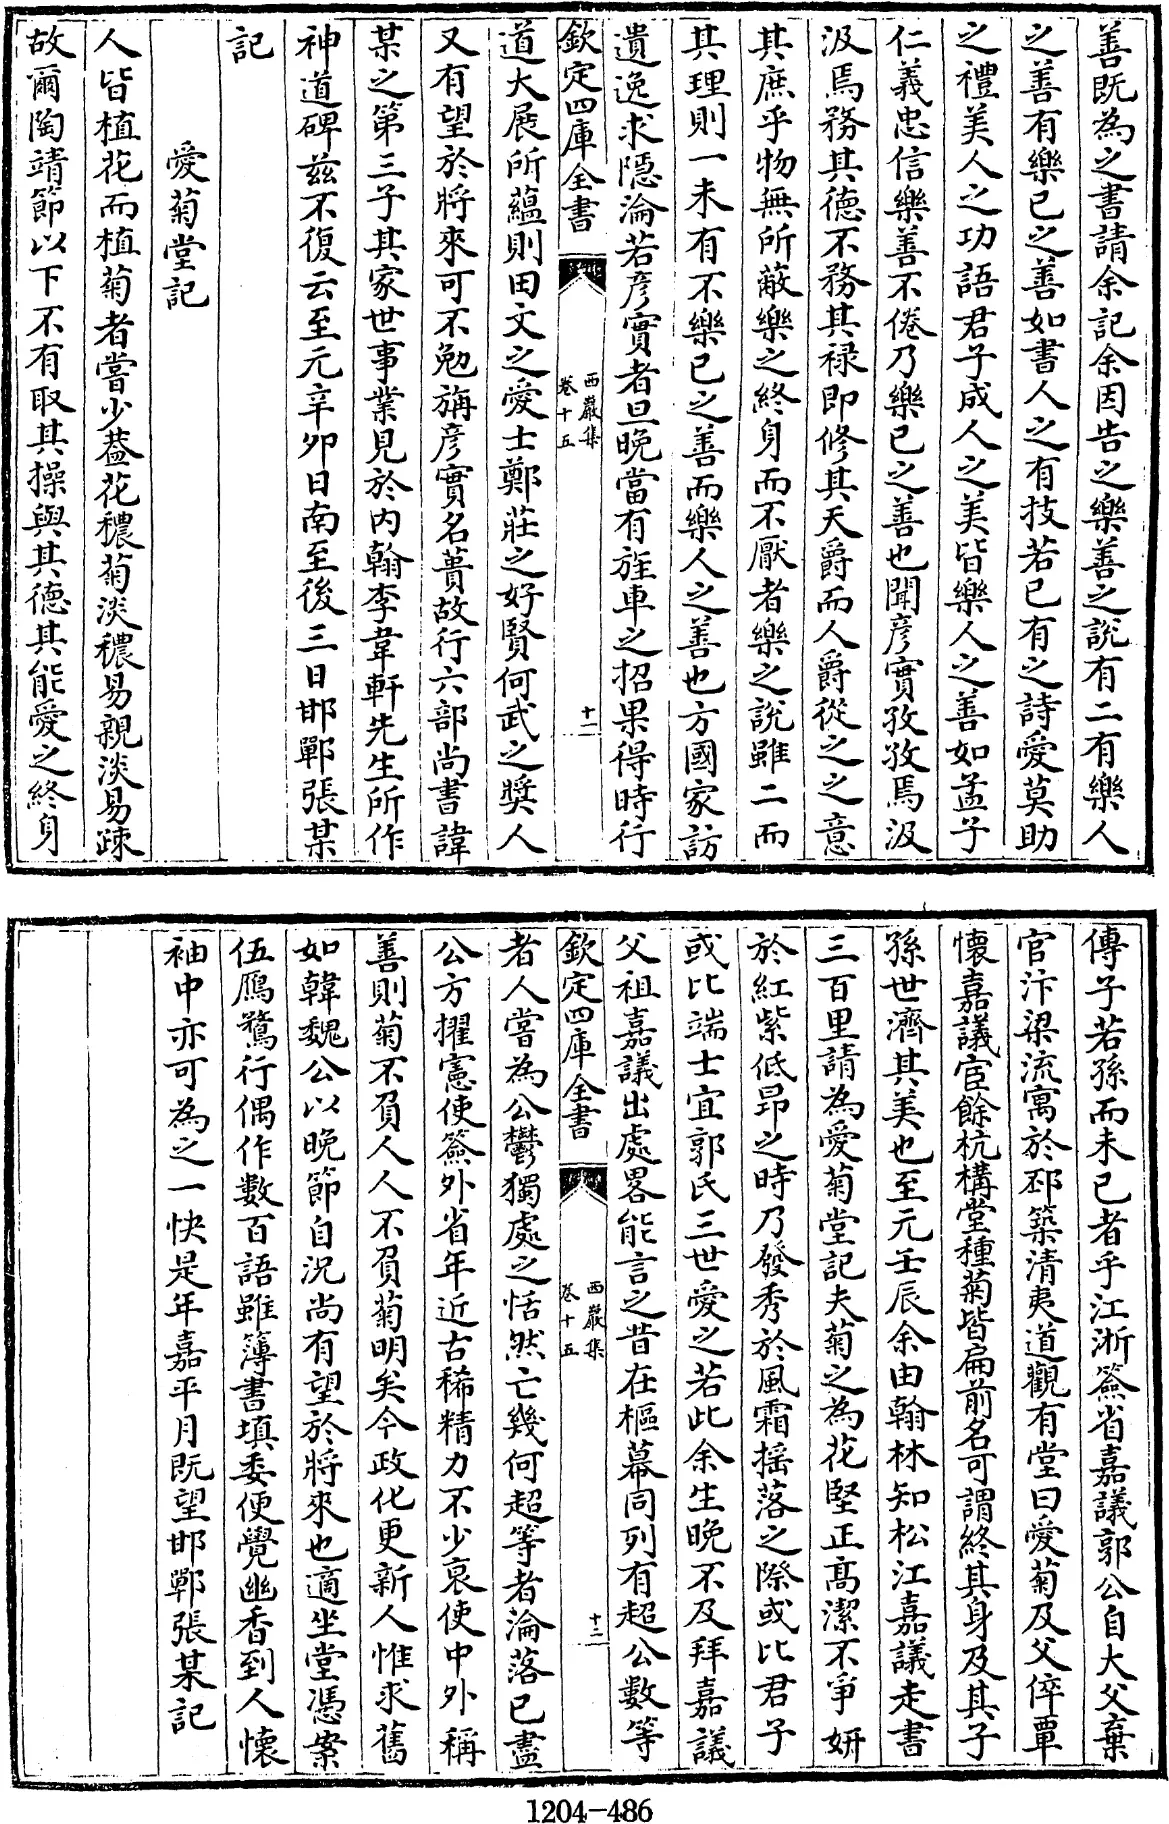 善既為之書請余記余因告之樂善之說有二有樂人
之善有樂已之善如書人之有技若已有之詩愛莫助
之禮美人之功語君子成人之美皆樂人之善如孟子
仁義忠信樂善不倦乃樂已之善也聞彦實孜孜焉汲
汲焉務其德不務其禄即修其天爵而人爵從之之意
其庶乎物無所蔽樂之終身而不厭者樂之說雖二而
其理則一未有不樂已之善而樂人之善也方國家訪
遺逸求隱淪若彦實者旦晚當有旌車之招果得時行
欽定四庫全書
西巖集
卷十五
十一
道大展所蘊則田文之愛士鄭莊之好賢何武之奬人
又有望於將來可不勉旃彦實名蕡故行六部尚書諱
某之第三子其家世事業見於内翰李韋軒先生所作
神道碑兹不復云至元辛夘日南至後三日邯鄲張某
記
愛菊堂記
人皆植花而植菊者嘗少葢花穠菊淡穠易親淡易踈
故爾陶靖節以下不有取其操與其德其能愛之終身
傳子若孫而未已者乎江淅簽省嘉議郭公自大父棄
官汴梁流寓於邳築清夷道觀有堂曰愛菊及父倅覃
懷嘉議宦餘杭構堂種菊皆扁前名可謂終其身及其子
孫世濟其美也至元壬辰余由翰林知松江嘉議走書
三百里請為愛菊堂記夫菊之為花堅正髙潔不爭妍
於紅紫低昻之時乃發秀於風霜揺落之際或比君子
或比端士宜郭氏三世愛之若此余生晚不及拜嘉議
父祖嘉議出處畧能言之昔在樞幕同列有超公數等
欽定四庫全書
西巖集
卷十五
十二
者人嘗為公鬱獨處之恬然亡幾何超等者淪落已盡
公方擢憲使簽外省年近古稀精力不少衰使中外稱
善則菊不負人人不負菊明矣今政化更新人惟求舊
如韓魏公以晚節自況尚有望於將來也適坐堂憑案
伍鴈鶩行偶作數百語雖簿書填委便覺幽香到人懷
袖中亦可為之一快是年嘉平月既望邯鄲張某記
1204-486